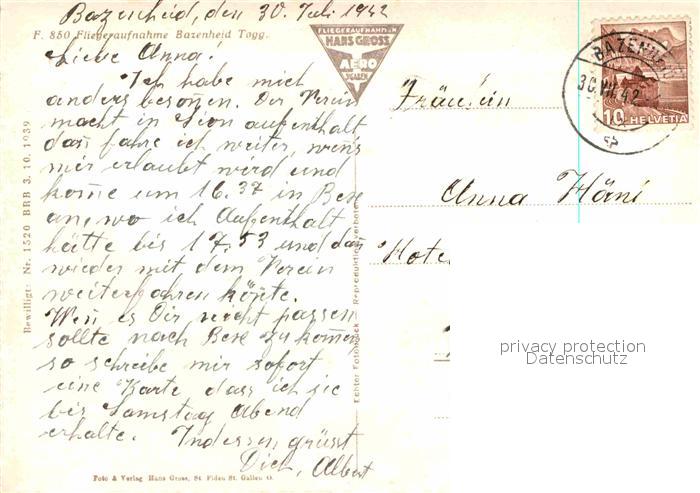 Bazenheid, den 30. Juli 1942
F. 850 Fliegeraufnahme Bazenheid Togg.
Liebe Anna!
Ich habe mich
anders besonen. Der Verein
macht in Sion aufenthalt
dan fahre ich weiter, wens
mir erlaubt wird und
kome um 16.37 in Bex
an, wo ich Aufenthalt
hätte bis 17.53 und dan
wieder mit dem Verein
weiterfahren könte.
Wen es Dir nicht passen
sollte nach Bex zu komen
so schreibe mir sofort
eine Karte dass ich sie
bis Samstag Abend
erhalte. Indessen grüsst
Dich, Albert
Foto & Verlag Hans Gross, St. Fiden St. Gallen O.
Bewilligt: Nr. 1520 BRB 3. 10. 1939
FLIEGERAUFNAHMEN
HANS GROSS
AERO
ST. GALLEN
Echter Fotodruck Reproduktion verboten
BAZENHEID
30.VII.42
10 HELVETIA
Fräulein
Anna Häni
Hote
privacy protection
Datenschutz